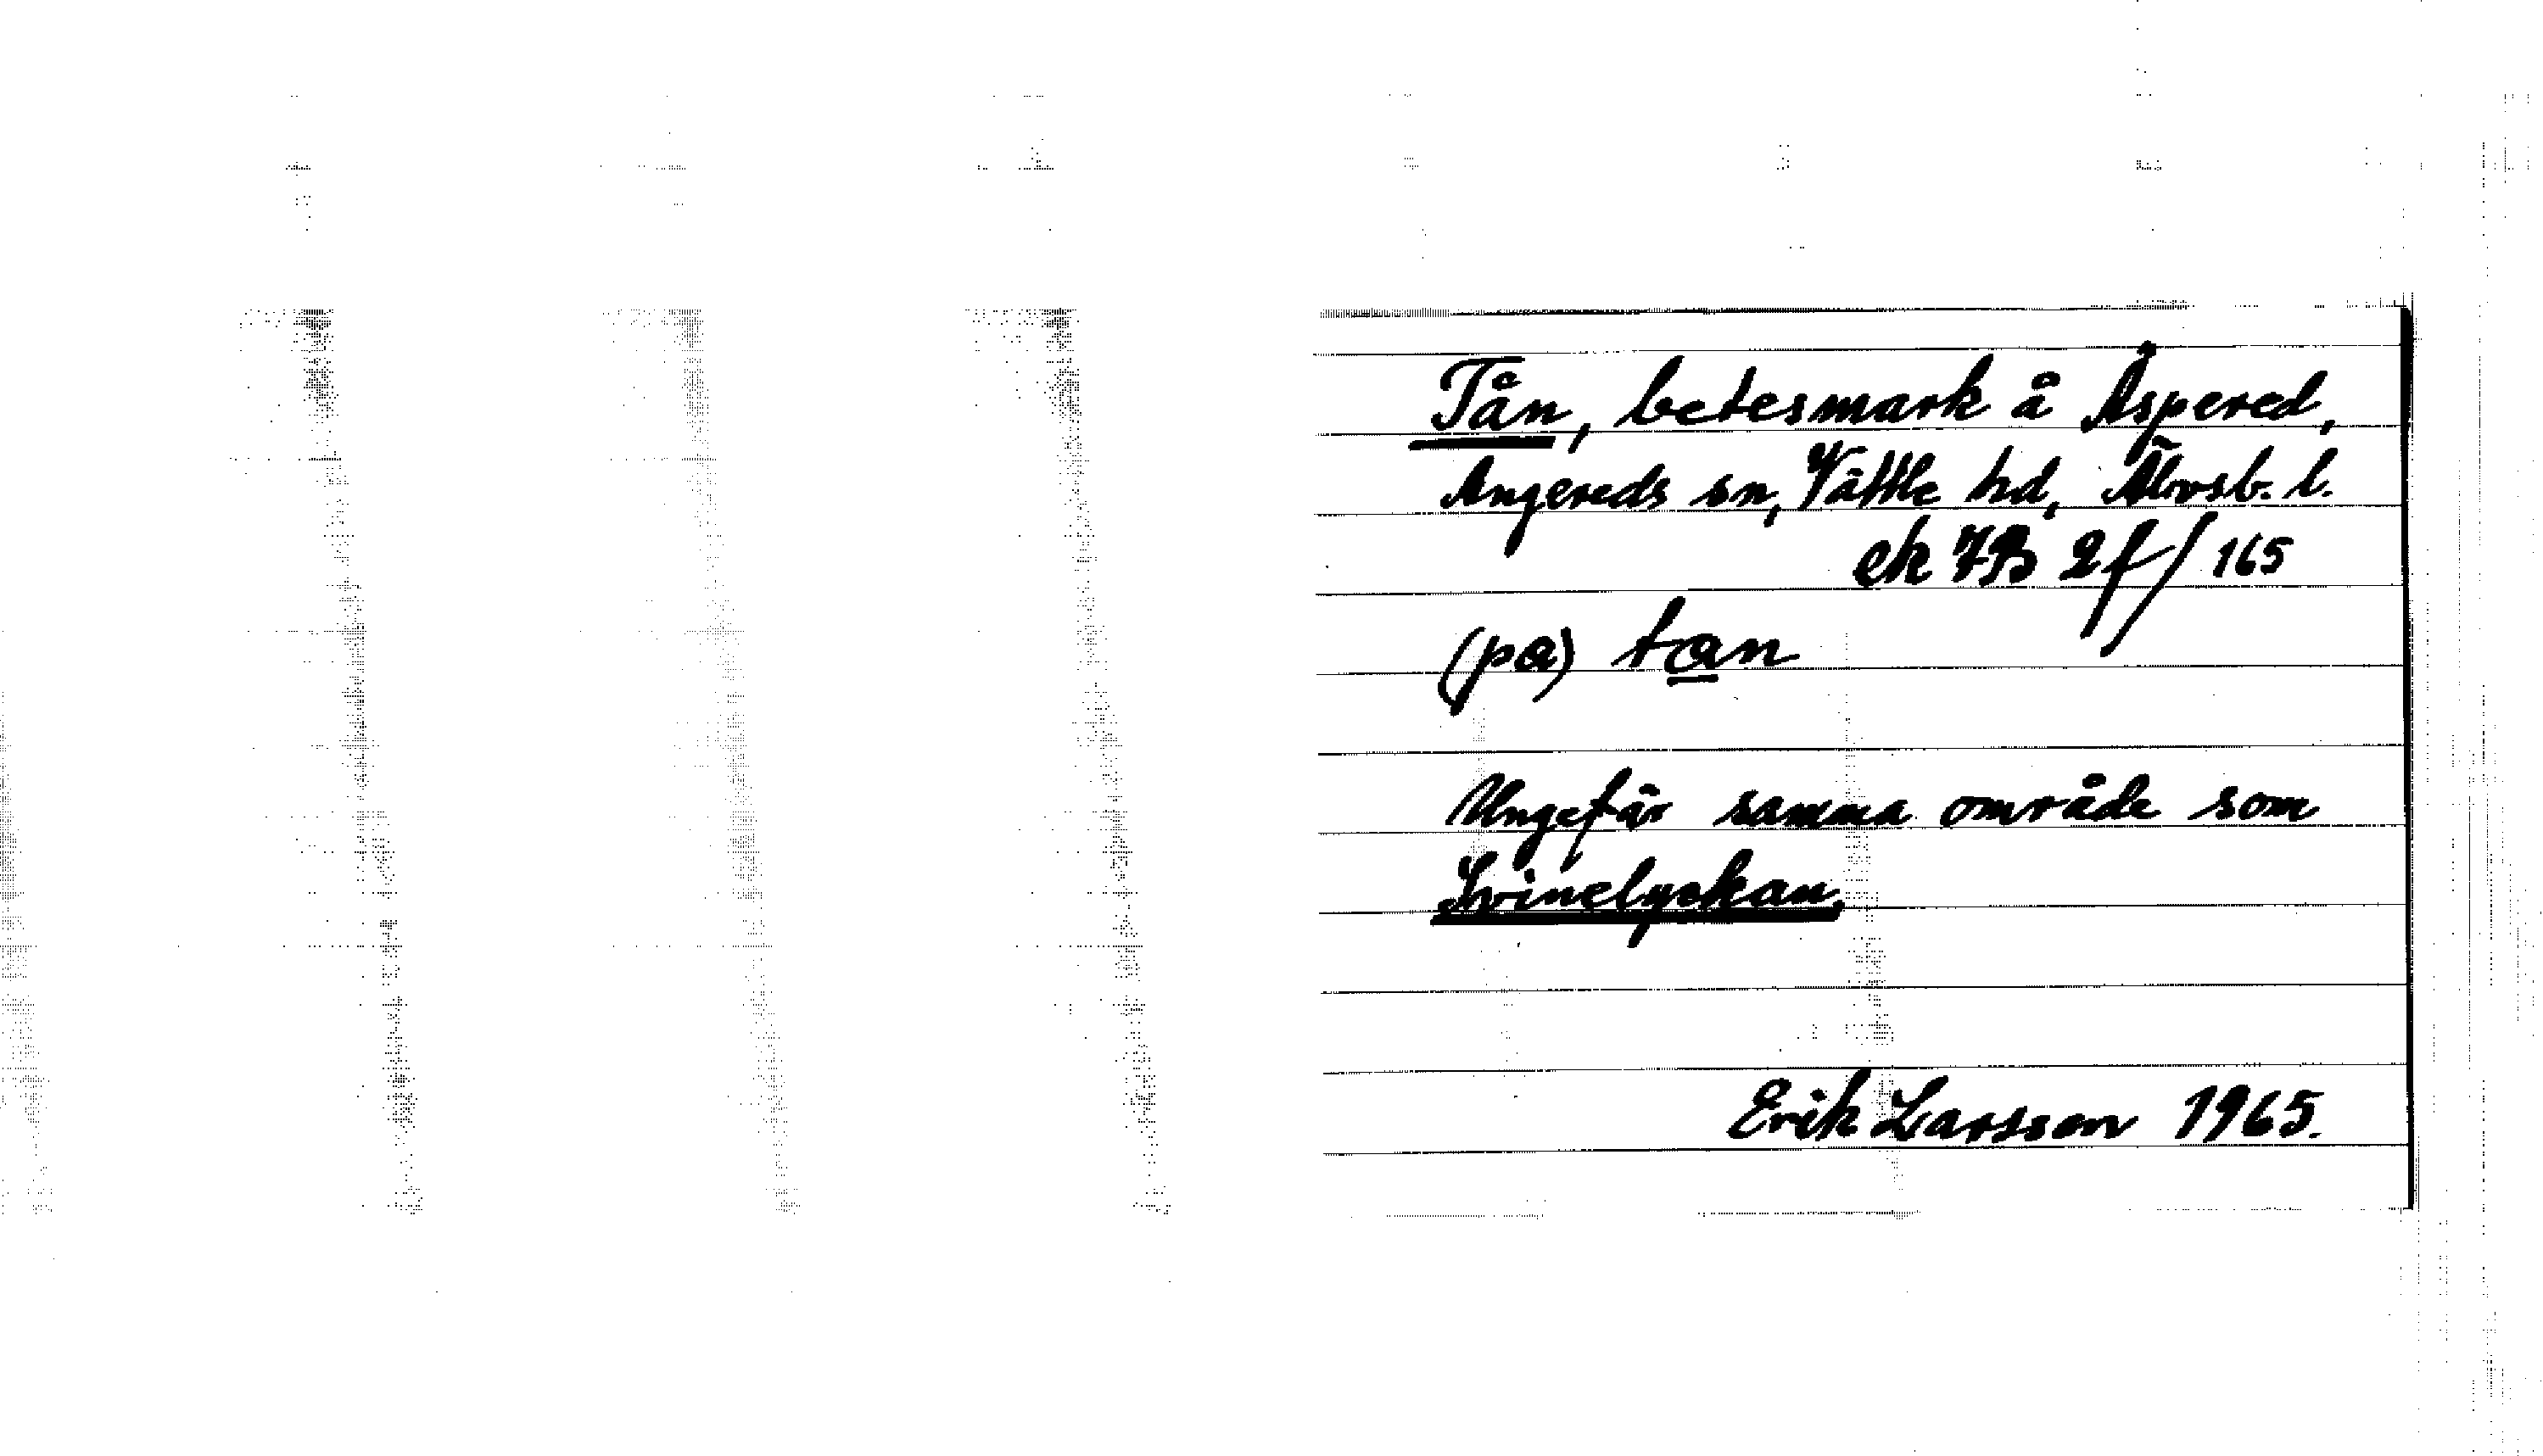 Tån, betesmark å Åspered,
Angereds sn, Vättle hd, Älvsb. l.
ek 7B 2f/165
(pa) tan
Ungefär samma område som
Svinelyckan.
Erik Larsson 1965.